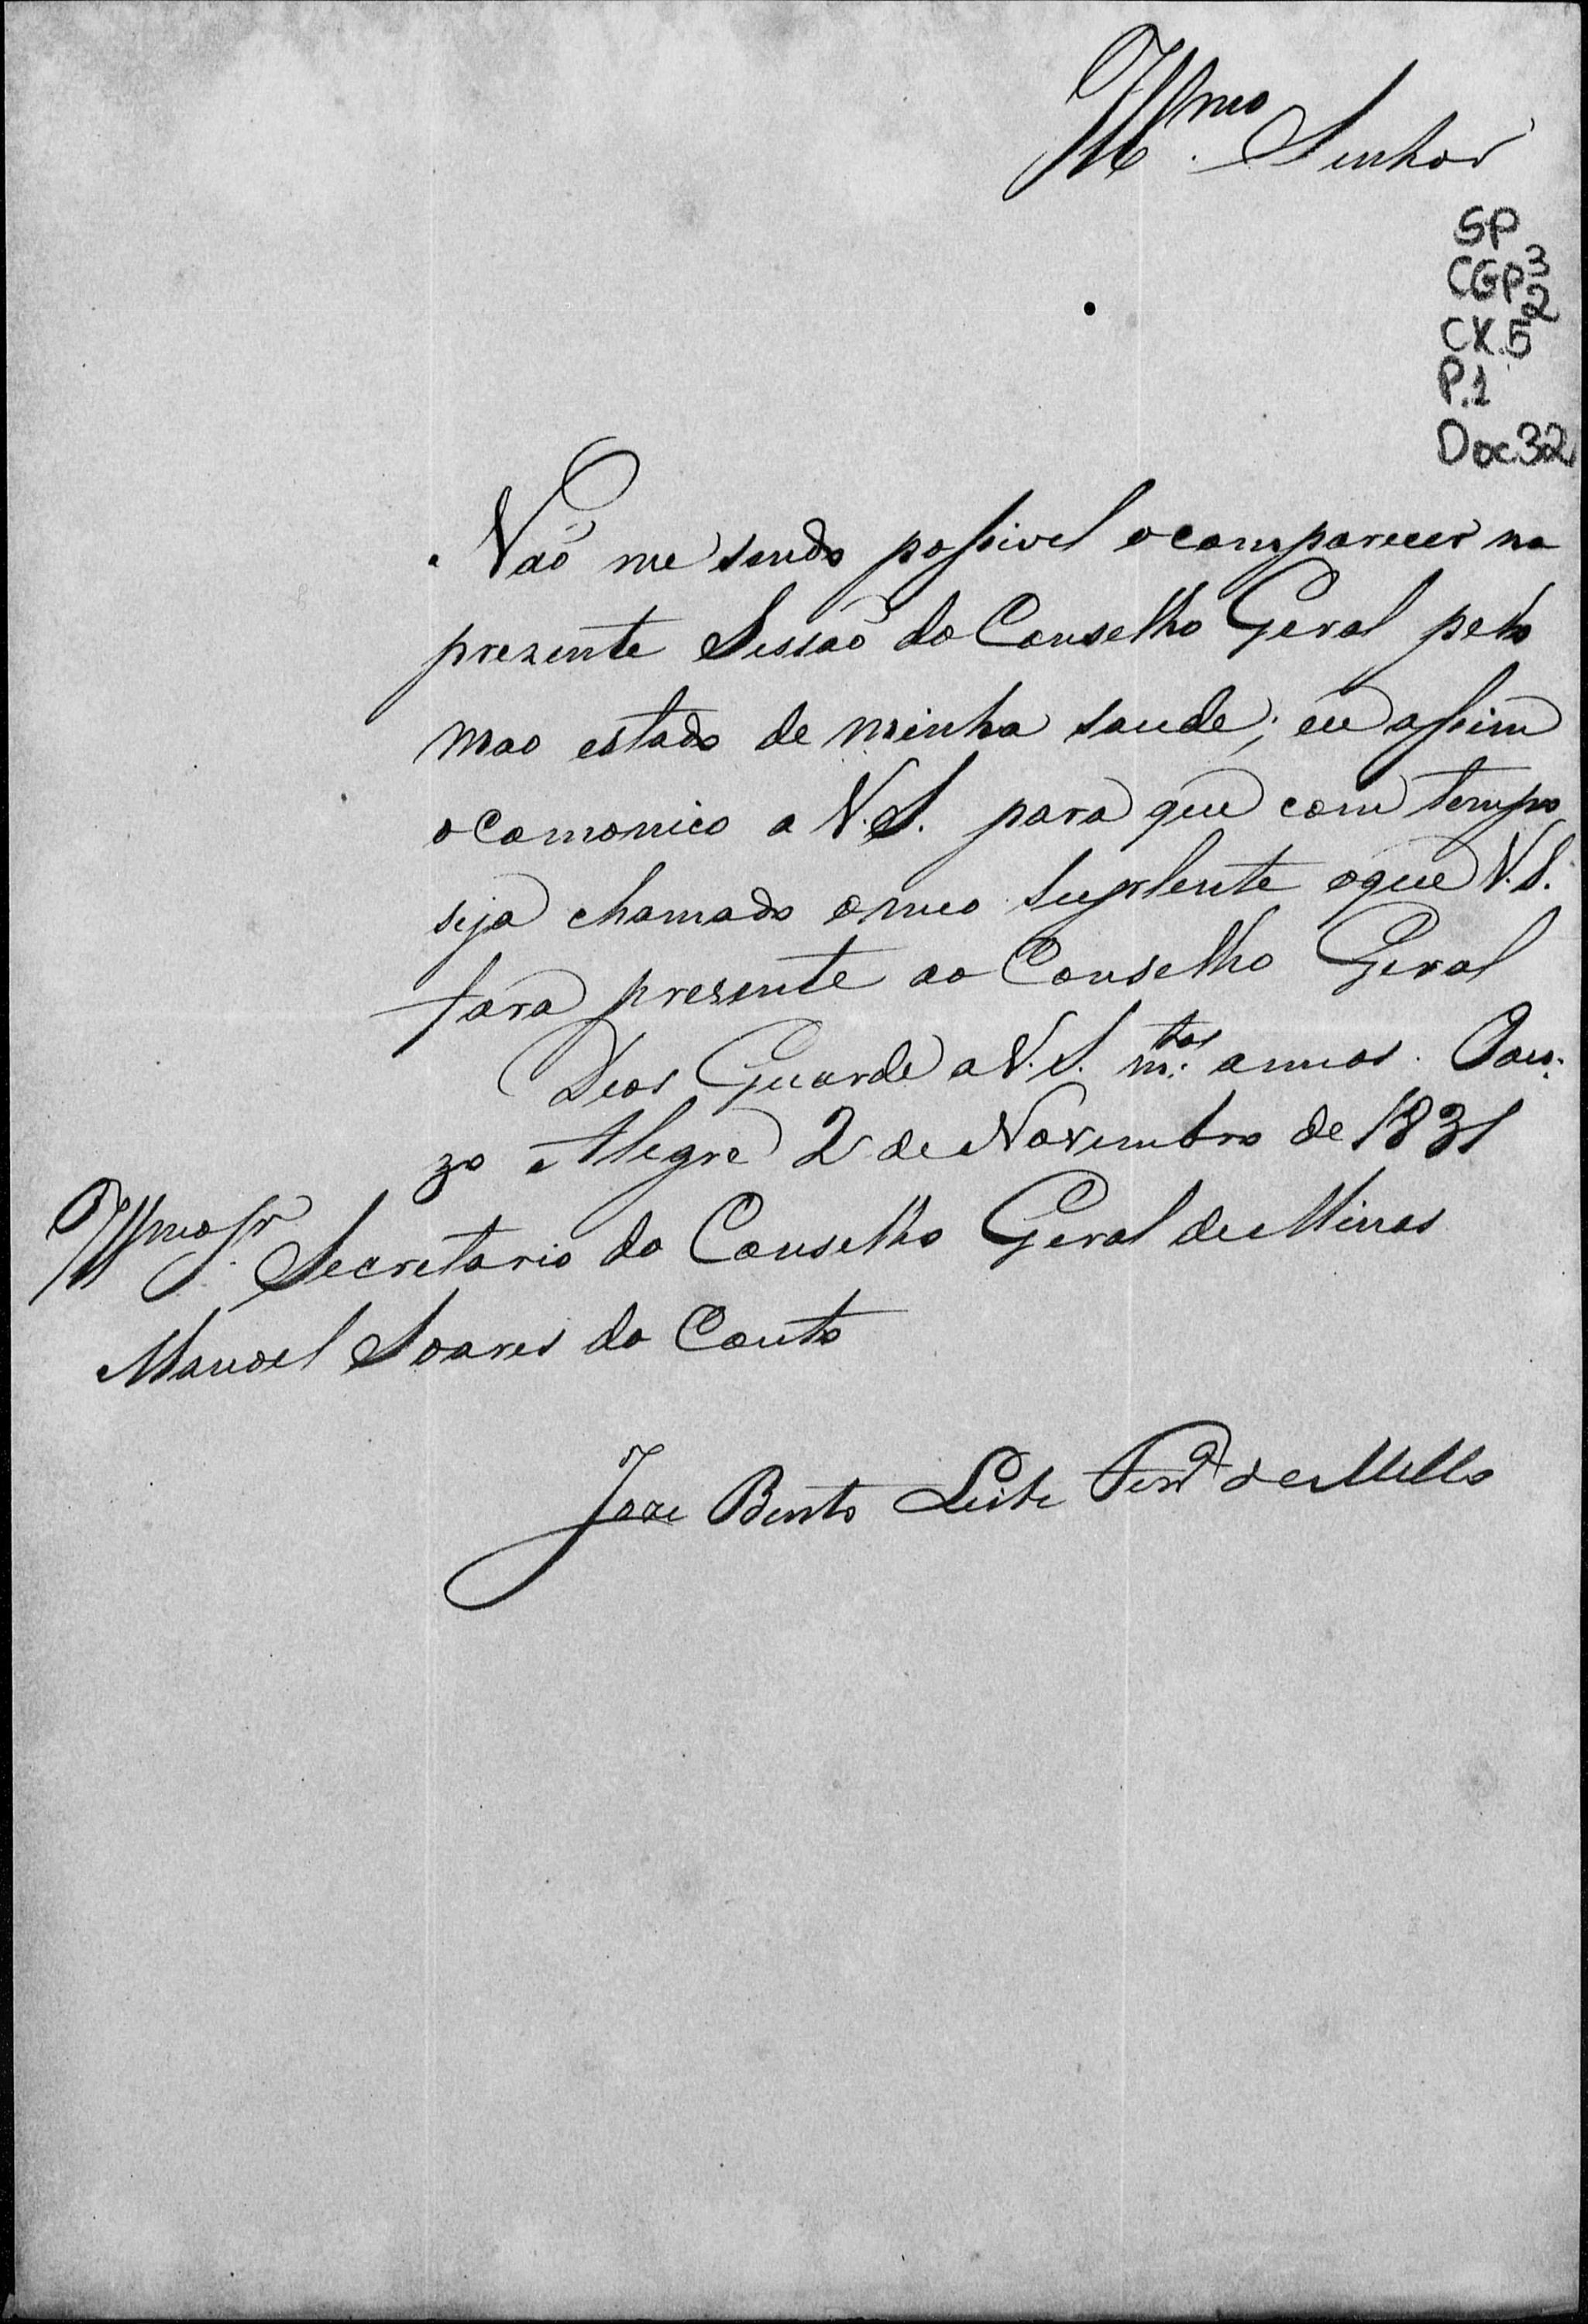 Illmo. Senhor
SP
CGP 3
2
CX.5
P.1
Doc32
Naõ me sendo possivel o comparecer na
prezente Sessaõ do Conselho Geral pelo
mao estado de minha saude; eu assim
o comonico a V.S. para que com tempo
seja chamado o meo suplente o que V.S.
fara prezente ao Conselho Geral
Deos Guarde a V.S. m.tos annos. Pou-
zo Alegre 2 de Novembro de 1831
Illmo Sr. Secretario do Conselho Geral de Minas
Manoel Soares do Couto
Joze Bento Leite Ferra de Mello